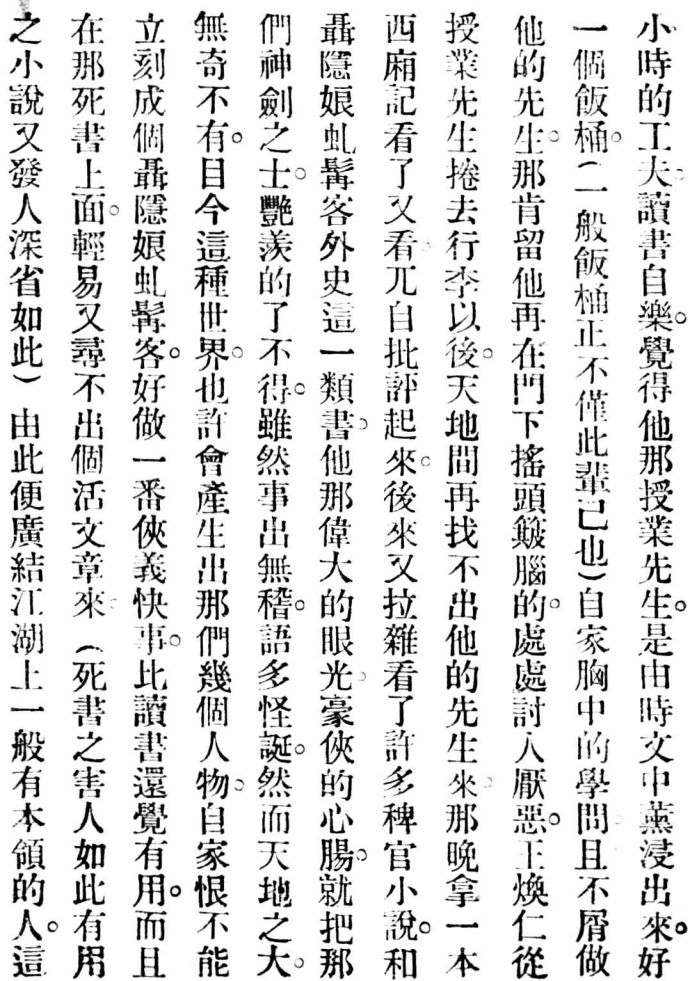 小時的工夫讀書自樂。覺得他那授業先生。是由時文中薰浸出來。好
一個飯桶。(一般飯桶正不僅此輩已也)自家胸中的學問且不屑做
他的先生。那肯留他再在門下搖頭簸腦的。處處討人厭惡。王煥仁從
授業先生捲去行李以後。天地間再找不出他的先生來。那晚拿一本
西廂記看了又看。兀自批評起來。後來又拉雜看了許多稗官小說。和
聶隱娘虬髯客外史這一類書。他那偉大的眼光。豪俠的心腸。就把那
們神劍之士。艷羨的了不得。雖然事出無稽。語多怪誕。然而天地之大。
無奇不有。目今這種世界。也許會產生出那們幾個人物。自家恨不能
立刻成個聶隱娘虬髯客。好做一番俠義快事。比讀書還覺有用。而且
在那死書上面。輕易又尋不出個活文章來。(死書之害人如此有用
之小說又發人深省如此)由此便廣結江湖上一般有本領的人。這